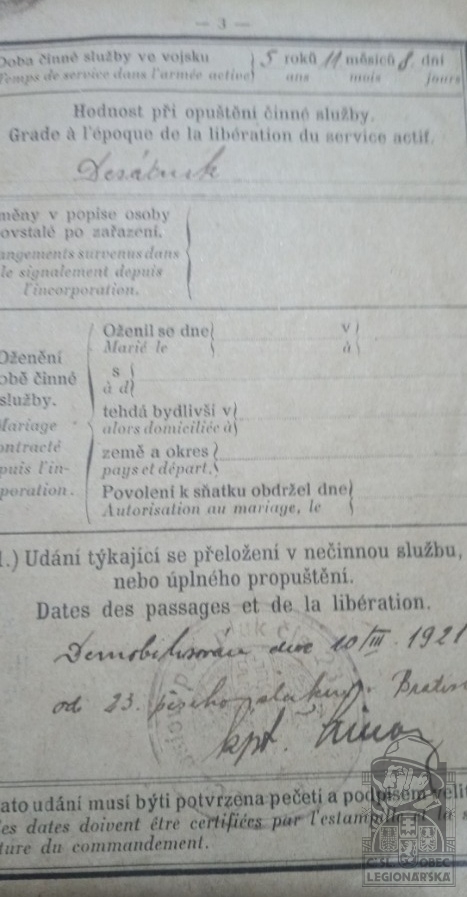 — 3 —
Doba činné služby ve vojsku 5 roků 11 měsíců 8 dní
Temps de service dans l'armée active ans mois jours
Hodnost při opuštění činné služby.
Grade à l'époque de la libération du service actif.
Desátník
měny v popise osoby
ovstalé po zařazení.
angements survenus dans
le signalement depuis
l'incorporation.
Oženění
obě činné
služby.
Mariage
ontracté
puis l'in-
poration.
Oženil se dne v
Marié le à
s
à d
tehdá bydlivší v
alors domiciliée à
země a okres
pays et départ.
Povolení k sňatku obdržel dne
Autorisation au mariage, le
1.) Udání týkající se přeložení v nečinnou službu,
nebo úplného propuštění.
Dates des passages et de la libération.
Demobilisován dne 10/III. 1921
od 23. pěšího pluku Bratisl
kpt.
ato udání musí býti potvrzena pečetí a podpisem velit
es dates doivent être certifiées par l'estampille et la s
ture du commandement.
ČS. OBEC
LEGIONÁŘSKÁ